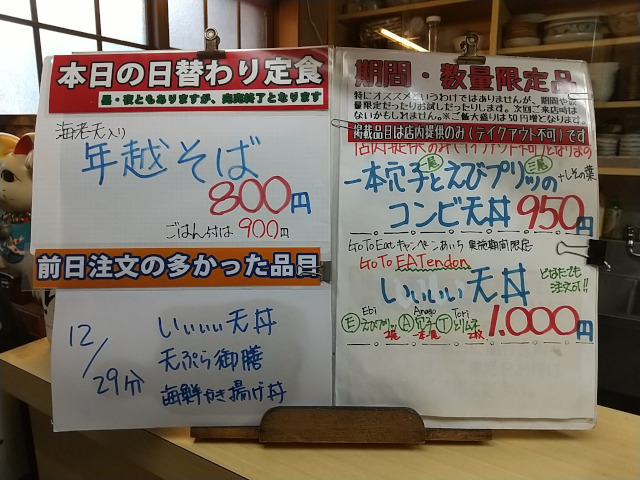 本日の日替わり定食
昼・夜ともありますが、完売終了となります
海老天入り
年越そば
800円
ごはん付は900円
前日注文の多かった品目
12/29分
いいいい天丼
天ぷら御膳
海鮮かき揚げ丼
期間・数量限定品
特にオススメというわけではありませんが、期間や数
量限定だったりお試しだったりします。次回ご来店時は
ないかもしれません。※ご飯大盛りは50円増となります。
掲載品目は店内提供のみ(テイクアウト不可)です
店内提供のみ(テイクアウト不可)となります
一本穴子とえびプリッの
尾 三尾
+しその葉
コンビ天丼 950円
GoToEatキャンペーンあいち 実施期間限定
GoTo EATendon
いいいい天丼
どなたでも
注文OK!!
1.000円
Ebi Anago Tori
Eえびプリッ A穴子 Tとりムネ
2尾 一本 2枚